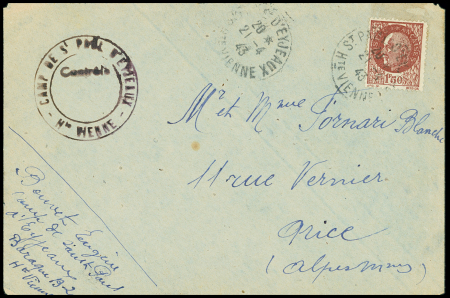 CAMP DE St PAUL D'EYJEAUX
Contrôle
Hte VIENNE
D'EYJEAUX
20 *
21-4
43
VIENNE
St P
43
VIENNE
1f50
Mr et Mme Fornari Blanche
11 rue Vernier
Nice
(Alpes Mmes)
Bouvet Eugène
Camp de Saint Paul
d'Eyjeaux
Baraque B2
Hte Vienne